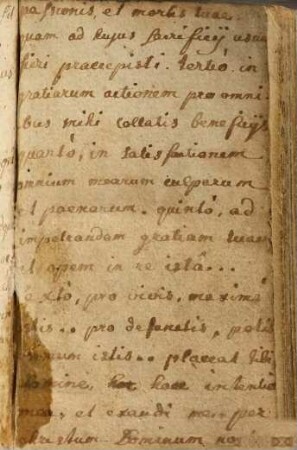 passionis, et mortis tuae
quam ad hujus sacrificij usum
fieri praecepisti. tertiò. in
gratiarum actionem pro omni
bus mihi collatis beneficijs
quartò, in satisfactionem
omnium mearum culparum
et poenarum. quintò, ad
impetrandam gratiam tuam
et opem in re istâ...
sextò, pro vivis, maximè
istis.. pro defunctis, potis
simum istis.. placeat tibi
Domine, haec intentio
mea, et exaudi me. per
christum Dominum nos